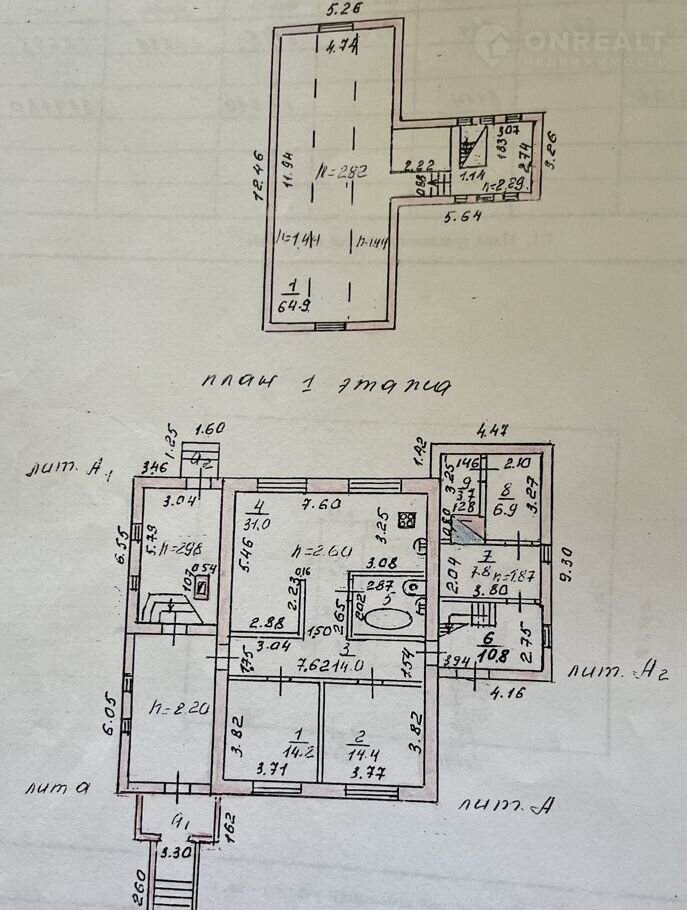 5.26
ONREALT
НЕДВИЖИМОСТЬ
4.74
12.46
11.94
h=2.82
h=1.44
h=1.44
1
64.9
2.22
0.88
1.14
1.83
3.07
2.74
3.26
h=2.29
5.64
план 1 этажа
лит. А1
3.46
1.25
1.60
а2
3.04
6.55
5.79
h=2.98
0.54
1.07
4
31.0
7.60
5.46
h=2.60
3.25
3.08
2.23
0.16
2.88
1.50
2.65
2.02
2.87
5
1.42
4.47
3.25
1.46
9
3.7
1.28
0.80
2.10
8
6.9
3.27
7
7.8
h=1.87
2.04
3.80
9.30
6
10.8
2.75
3.94
4.16
лит. А2
3.04
1.75
7.62
3
14.0
1.54
6.05
h=2.20
3.82
1
14.2
3.71
2
14.4
3.77
3.82
лит а
лит. А
а1
1.62
3.30
2.60